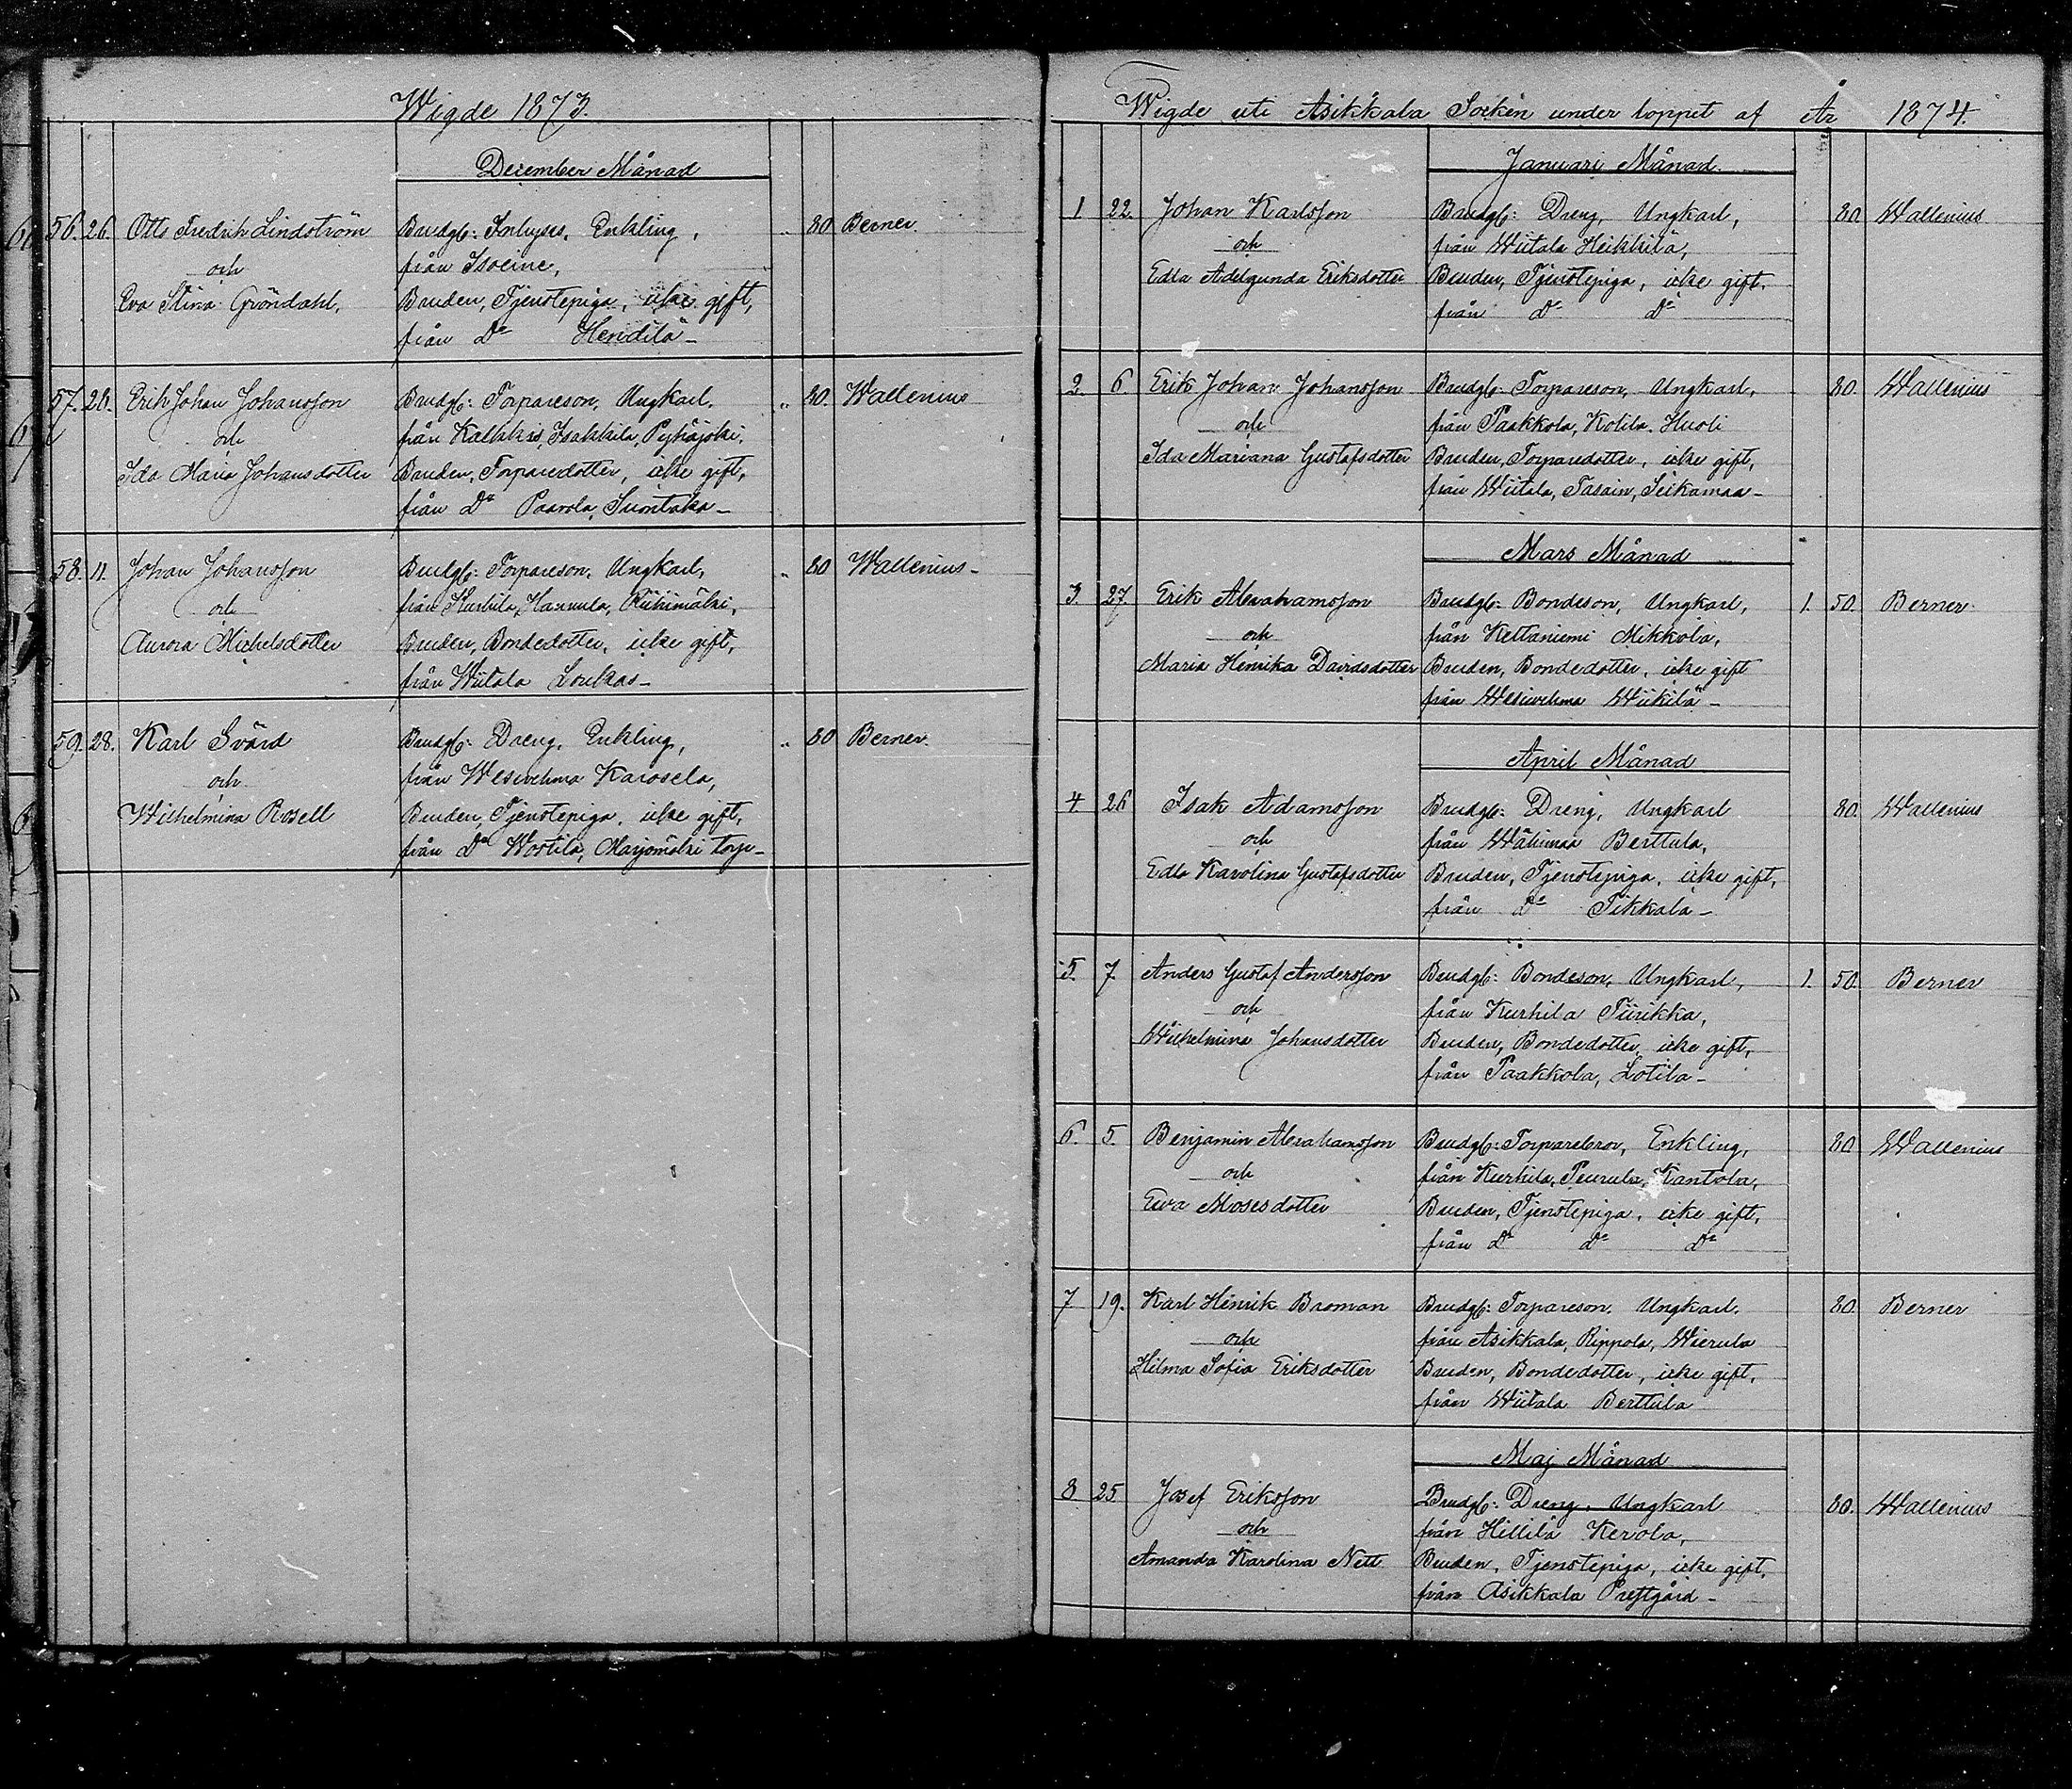 Wigde 1873.
December Månad
56. 26. Otto Fredrik Lindström Brudg: Inhyses, Enkling, " 80 Berner
och från Isoeine,
Eva Stina Gröndahl, Bruden, Tjenstepiga, icke gift,
från Do Hendilä –
57. 28. Erik Johan Johansson Brudg: Torpareson, Ungkarl, " 80. Wallenius
och från Kalkkis, Isakkila, Pyhäjoki.
Ida Maria Johansdotter Bruden, Torparedotter, icke gift,
från Do Paavola, Suontaka –
58. 11. Johan Johansson Brudg: Torpareson, Ungkarl, " 80 Wallenius –
och från Kurhila, Hannula, Riihimäki,
Aurora Michelsdotter Bruden, Bondedotter, icke gift,
från Wiitala Loukas –
59. 28. Karl Svärd Brudg: Dreng, Enkling, " 80 Berner.
och från Wesivehma Karosela,
Wilhelmina Rosell Bruden, Tjenstepiga, icke gift,
från Do Wostila, Marjomäki torp –
Wigde uti Asikkala Socken under loppet af År 1874.
Januari Månad.
1 22. Johan Karlsson Brudg: Dreng, Ungkarl, 80. Wallenius
och från Wiitala Heikkilä,
Edla Adelgunda Eriksdotter Bruden, Tjenstepiga, icke gift.
från Do Do
2. 6. Erik Johan Johansson Brudg: Torpareson, Ungkarl, 80. Wallenius
och från Paakkola, Kotila, Huoli
Ida Mariana Gustafsdotter Bruden, Torparedotter, icke gift,
från Wiitala, Tasain, Seikamaa –
Mars Månad
3. 27. Erik Abrahamsson Brudg: Bondeson, Ungkarl, 1. 50. Berner
och från Keltaniemi Mikkola,
Maria Henrika Davidsdotter Bruden, Bondedotter, icke gift
från Wesivehma Wiikilä –
April Månad
4 26 Isak Adamsson Brudg: Dreng, Ungkarl 80. Wallenius
och från Wähimaa Berttula,
Edla Karolina Gustafsdotter Bruden, Tjenstepiga, icke gift,
från Do Pikkala –
5. 7. Anders Gustaf Andersson Brudg: Bondeson, Ungkarl, 1. 50. Berner
och från Kurhila Piirikka,
Wilhelmina Johansdotter Bruden, Bondedotter, icke gift,
från Paakkola, Lotila –
6. 5. Benjamin Abrahamsson Brudg: Torparebror, Enkling, 80 Wallenius
och från Kurhila, Peurula, Kantola,
Eva Mosesdotter Bruden, Tjenstepiga, icke gift,
från Do Do Do
7 19. Karl Henrik Broman Brudg: Torpareson, Ungkarl, 80. Berner
och från Asikkala, Rippola, Wierula
Hilma Sofia Eriksdotter Bruden, Bondedotter, icke gift,
från Wiitala Berttula
Maj Månad
8 25 Josef Eriksson Brudg: Dreng, Ungkarl 80. Wallenius
och från Hillilä Kerola,
Amanda Karolina Nett Bruden, Tjenstepiga, icke gift,
från Asikkala Prestgård –